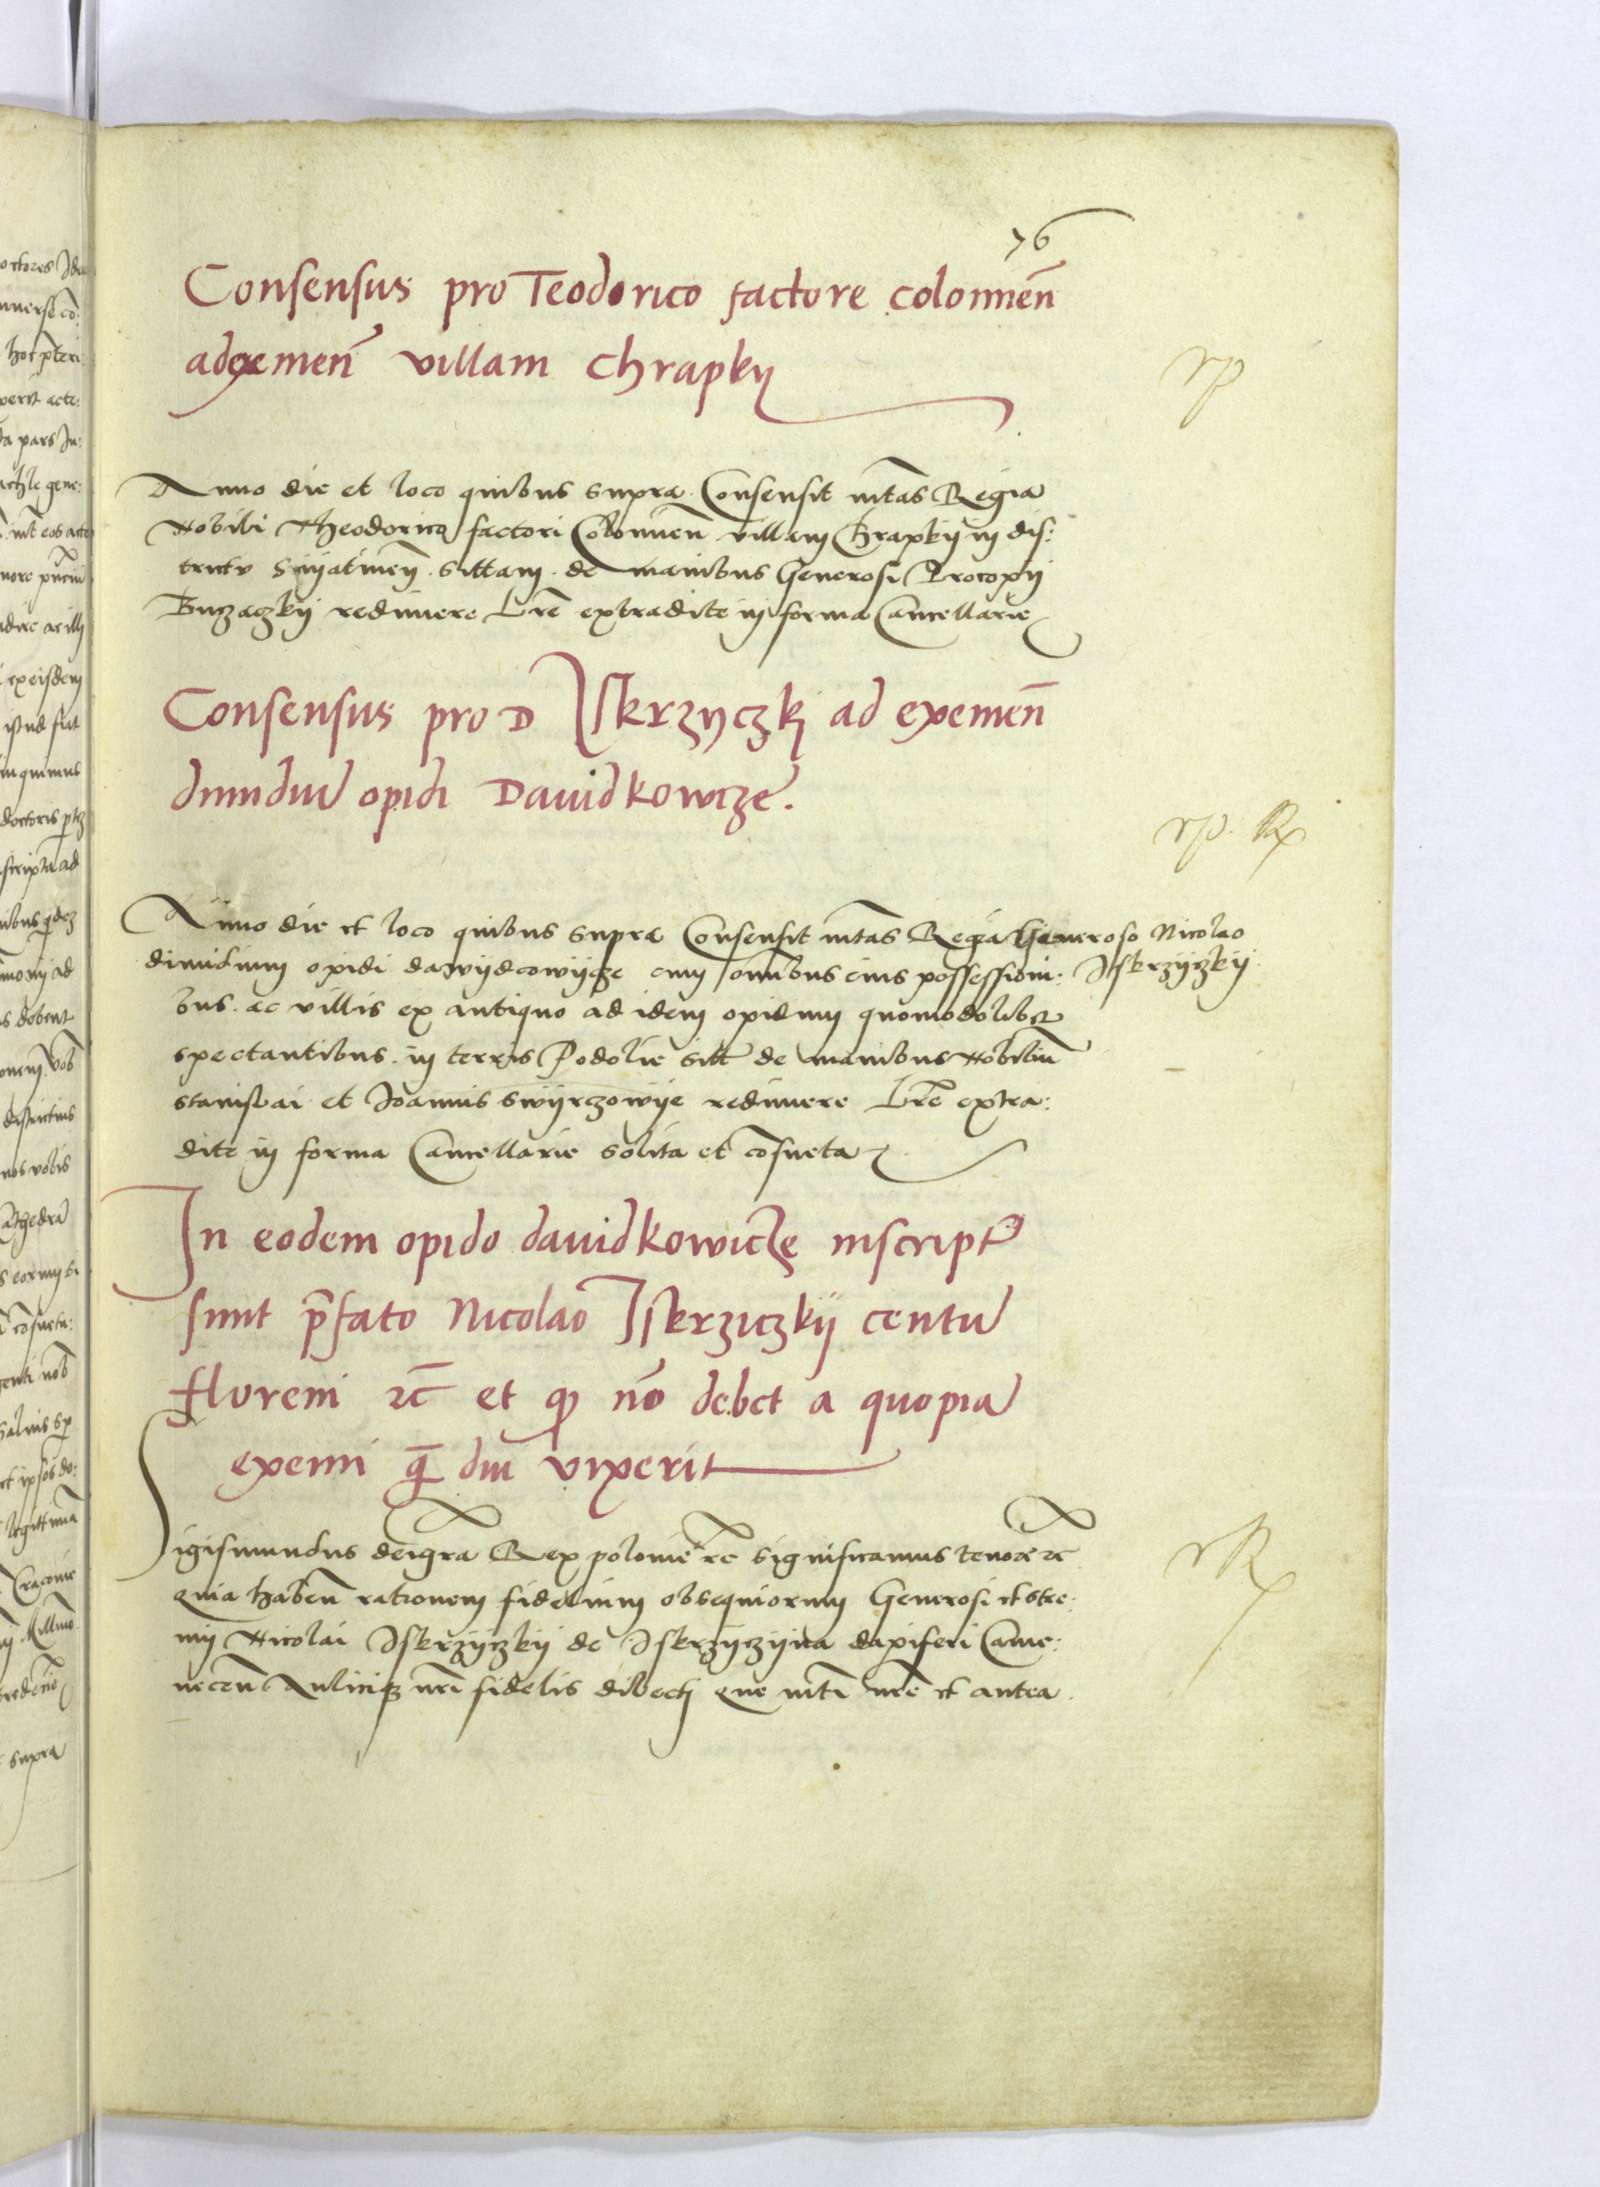 76
Consensus pro Teodorico factore colomien̄
ad exemen̄ villam Chrapky
rp
Anno die et loco quibus supra Consensit mtas Regia
Nobili Theodorico factori Colomien̄ villam Chrapky in dis:
trictu Snyatinen̄ sittam de manibus Generosi Procopy
Buczaczky redimere Lr̄e extradite in forma Cancellarie
Consensus pro D Iskrzyczky ad exemen̄
dimidiū opidi Davidkowcze.
rp. R
Anno die et loco quibus supra Consensit mtas Regia Generoso Nicolao
Iskrzyczky
dimidium opidi dawydcowycze cum omnibus eius possessioni:
bus ac villis ex antiquo ad idem opidum quomodolibet
spectantibus in terris Podolie sitt̄ de manibus Nobiliū
stanislai et Joannis swyrczowye redimere Lr̄e extra:
dite in forma Cancellarie solita et cōsueta
In eodem opido davidkowicze inscript
sunt p̄fato Nicolao Iskrziczky centū
floreni rc̄ et q nō debet a quopiā
exemi q̄ diu vixerit
rR
Sigismundus dei gr̄a Rex polonie rc̄ significamus tenore rc̄
Quia haben̄ rationem fidelium obsequiorum Generosi et stre:
nuy Nicolai Iskrzyczky de Iskrzyczyna dapiferi Came:
necen̄ Auliciq nr̄i fidelis dilecti que mti nr̄e et antea